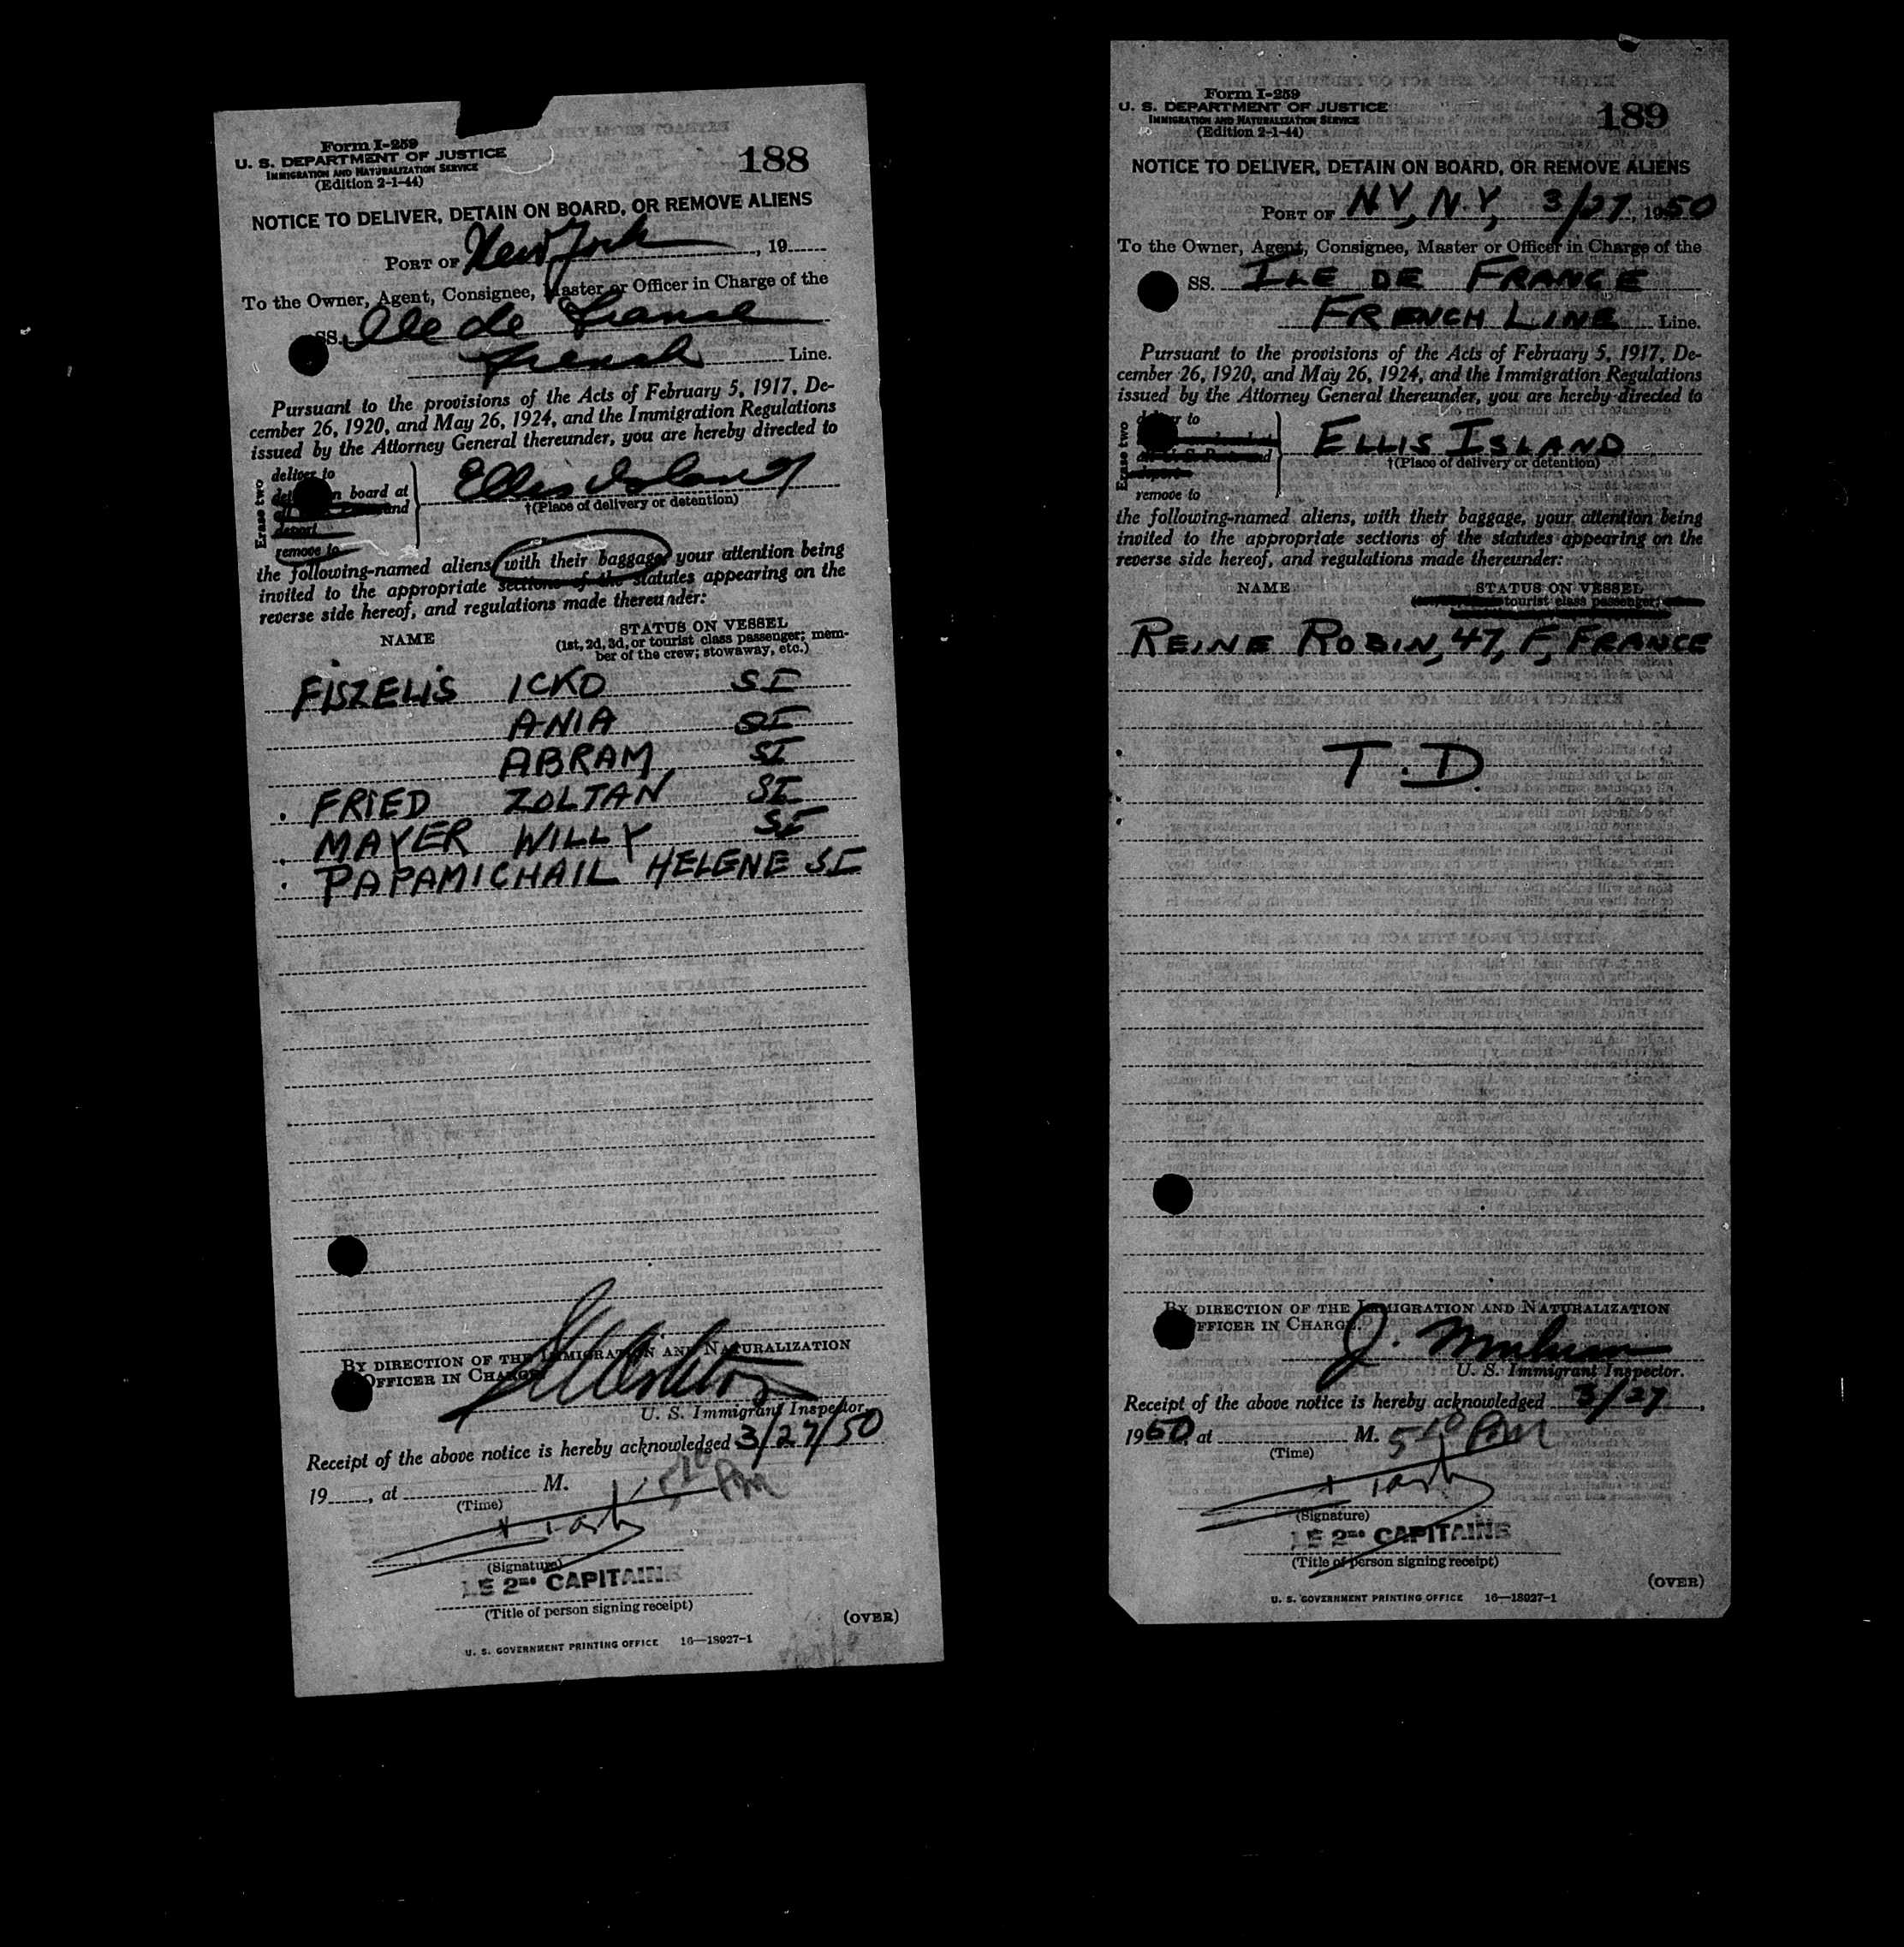 Form I-259
U. S. DEPARTMENT OF JUSTICE
IMMIGRATION AND NATURALIZATION SERVICE
(Edition 2-1-44)
188
NOTICE TO DELIVER, DETAIN ON BOARD, OR REMOVE ALIENS
PORT OF New York, 19
To the Owner, Agent, Consignee, Master or Officer in Charge of the
SS. Ile de France
French Line.
Pursuant to the provisions of the Acts of February 5, 1917, De-
cember 26, 1920, and May 26, 1924, and the Immigration Regulations
issued by the Attorney General thereunder, you are hereby directed to
Erase two
deliver to
board at
and
deport
remove to
Ellis Island
†(Place of delivery or detention)
the following-named aliens, with their baggage, your attention being
invited to the appropriate sections of the statutes appearing on the
reverse side hereof, and regulations made thereunder:
NAME STATUS ON VESSEL
(1st, 2d, 3d, or tourist class passenger; mem-
ber of the crew; stowaway, etc.)
FISZELIS ICKO SI
ANIA SI
ABRAM SI
FRIED ZOLTAN SI
MAYER WILLY SI
PAPAMICHAIL HELENE SI
BY DIRECTION OF THE IMMIGRATION AND NATURALIZATION
OFFICER IN CHARGE.
U. S. Immigrant Inspector.
Receipt of the above notice is hereby acknowledged 3/27/50
19, at M. 5 10 PM
(Time)
(Signature)
LE 2me CAPITAINE
(Title of person signing receipt)
(OVER)
U. S. GOVERNMENT PRINTING OFFICE 16—18027-1
Form I-259
U. S. DEPARTMENT OF JUSTICE
IMMIGRATION AND NATURALIZATION SERVICE
(Edition 2-1-44)
189
NOTICE TO DELIVER, DETAIN ON BOARD, OR REMOVE ALIENS
PORT OF N.Y, N.Y, 3/27, 1950
To the Owner, Agent, Consignee, Master or Officer in Charge of the
SS. ILE DE FRANCE
FRENCH LINE Line.
Pursuant to the provisions of the Acts of February 5, 1917, De-
cember 26, 1920, and May 26, 1924, and the Immigration Regulations
issued by the Attorney General thereunder, you are hereby directed to
Erase two
to
remove to
ELLIS ISLAND
†(Place of delivery or detention)
the following-named aliens, with their baggage, your attention being
invited to the appropriate sections of the statutes appearing on the
reverse side hereof, and regulations made thereunder:
NAME STATUS ON VESSEL
tourist class passenger;
REINE ROBIN, 47, F, FRANCE
T.D.
BY DIRECTION OF THE IMMIGRATION AND NATURALIZATION
OFFICER IN CHARGE.
U. S. Immigrant Inspector.
Receipt of the above notice is hereby acknowledged 3/27,
1950, at M. 5 10 PM
(Time)
(Signature)
LE 2me CAPITAINE
(Title of person signing receipt)
(OVER)
U. S. GOVERNMENT PRINTING OFFICE 16—18027-1